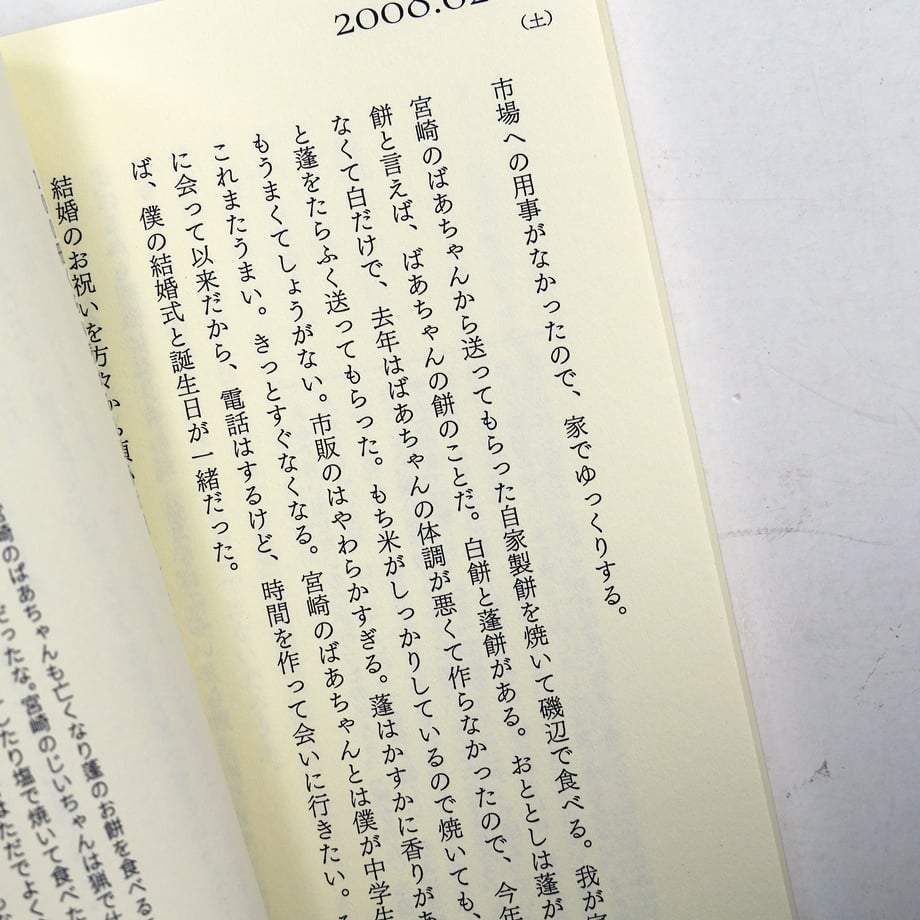 2008.02
(土)
市場への用事がなかったので、家でゆっくりする。
宮崎のばあちゃんから送ってもらった自家製餅を焼いて磯辺で食べる。我が家
餅と言えば、ばあちゃんの餅のことだ。白餅と蓬餅がある。おととしは蓬が
なくて白だけで、去年はばあちゃんの体調が悪くて作らなかったので、今年
と蓬をたらふく送ってもらった。もち米がしっかりしているので焼いても、
もうまくてしょうがない。市販のはやわらかすぎる。蓬はかすかに香りがあ
これまたうまい。きっとすぐなくなる。宮崎のばあちゃんとは僕が中学生
に会って以来だから、電話はするけど、時間を作って会いに行きたい。
ば、僕の結婚式と誕生日が一緒だった。
結婚のお祝いを方々から頂
宮崎のばあちゃんも亡くなり蓬のお餅を食べる
だったな。宮崎のじいちゃんは猟で仕
したり塩で焼いて食べた
はただでよく